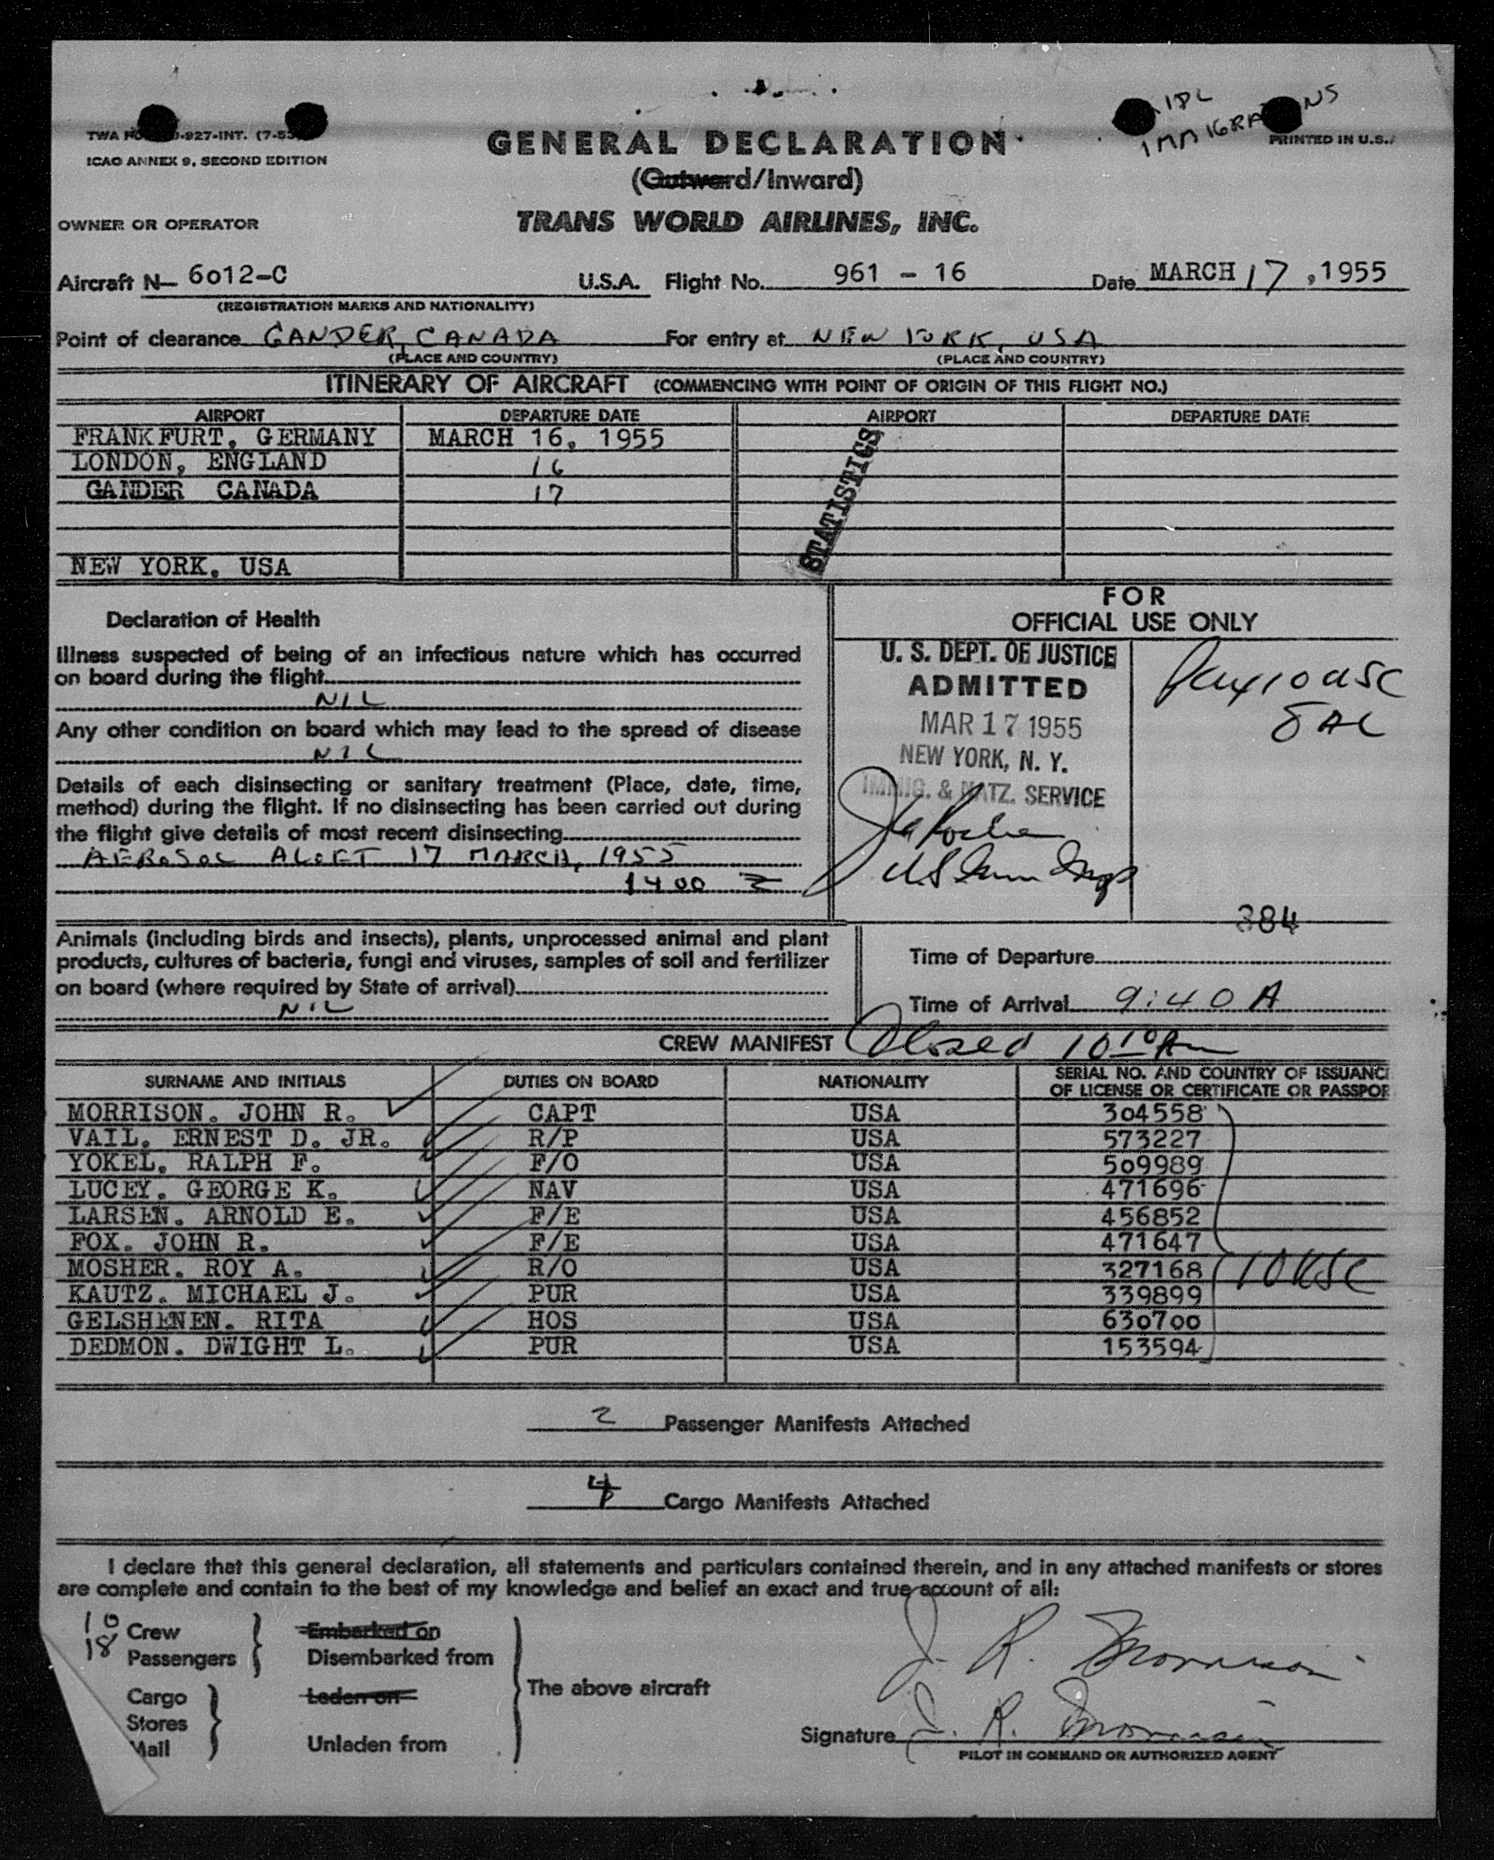 TWA -927-INT. (7-5
ICAO ANNEX 9, SECOND EDITION
IMMIGRATIONS
PRINTED IN U.S.
GENERAL DECLARATION
(Outward/Inward)
OWNER OR OPERATOR
TRANS WORLD AIRLINES, INC.
Aircraft N— 6012-C U.S.A. Flight No. 961 - 16 Date MARCH 17, 1955
(REGISTRATION MARKS AND NATIONALITY)
Point of clearance GANDER, CANADA For entry at NEW YORK, USA
(PLACE AND COUNTRY) (PLACE AND COUNTRY)
ITINERARY OF AIRCRAFT (COMMENCING WITH POINT OF ORIGIN OF THIS FLIGHT NO.)
AIRPORT DEPARTURE DATE AIRPORT DEPARTURE DATE
FRANKFURT, GERMANY MARCH 16, 1955
LONDON, ENGLAND 16
GANDER CANADA 17
STATISTICS
NEW YORK, USA
FOR
OFFICIAL USE ONLY
Declaration of Health
Illness suspected of being of an infectious nature which has occurred
on board during the flight
NIL
Any other condition on board which may lead to the spread of disease
NIL
Details of each disinsecting or sanitary treatment (Place, date, time,
method) during the flight. If no disinsecting has been carried out during
the flight give details of most recent disinsecting
AEROSOL ALOFT 17 MARCH, 1955
1400 Z
U. S. DEPT. OF JUSTICE
ADMITTED
MAR 17 1955
NEW YORK, N. Y.
IMMIG. & NATZ. SERVICE
10 USC
8 AL
384
Animals (including birds and insects), plants, unprocessed animal and plant
products, cultures of bacteria, fungi and viruses, samples of soil and fertilizer
on board (where required by State of arrival)
NIL
Time of Departure
Time of Arrival 9:40 A
CREW MANIFEST Closed 10 10 Am
SURNAME AND INITIALS DUTIES ON BOARD NATIONALITY SERIAL NO. AND COUNTRY OF ISSUANC
OF LICENSE OR CERTIFICATE OR PASSPOR
MORRISON. JOHN R. CAPT USA 304558
VAIL. ERNEST D. JR. R/P USA 573227
YOKEL. RALPH F. F/O USA 509989
LUCEY. GEORGE K. NAV USA 471696
LARSEN. ARNOLD E. F/E USA 456852
FOX. JOHN R. F/E USA 471647
MOSHER. ROY A. R/O USA 327168 10 USC
KAUTZ. MICHAEL J. PUR USA 339899
GELSHENEN. RITA HOS USA 630700
DEDMON. DWIGHT L. PUR USA 153594
2 Passenger Manifests Attached
4 Cargo Manifests Attached
I declare that this general declaration, all statements and particulars contained therein, and in any attached manifests or stores
are complete and contain to the best of my knowledge and belief an exact and true account of all:
10 Crew Embarked on
18 Passengers Disembarked from
The above aircraft
J. R. Morrison
Cargo Laden on
Stores
Mail Unladen from
Signature J. R. Morrison
PILOT IN COMMAND OR AUTHORIZED AGENT